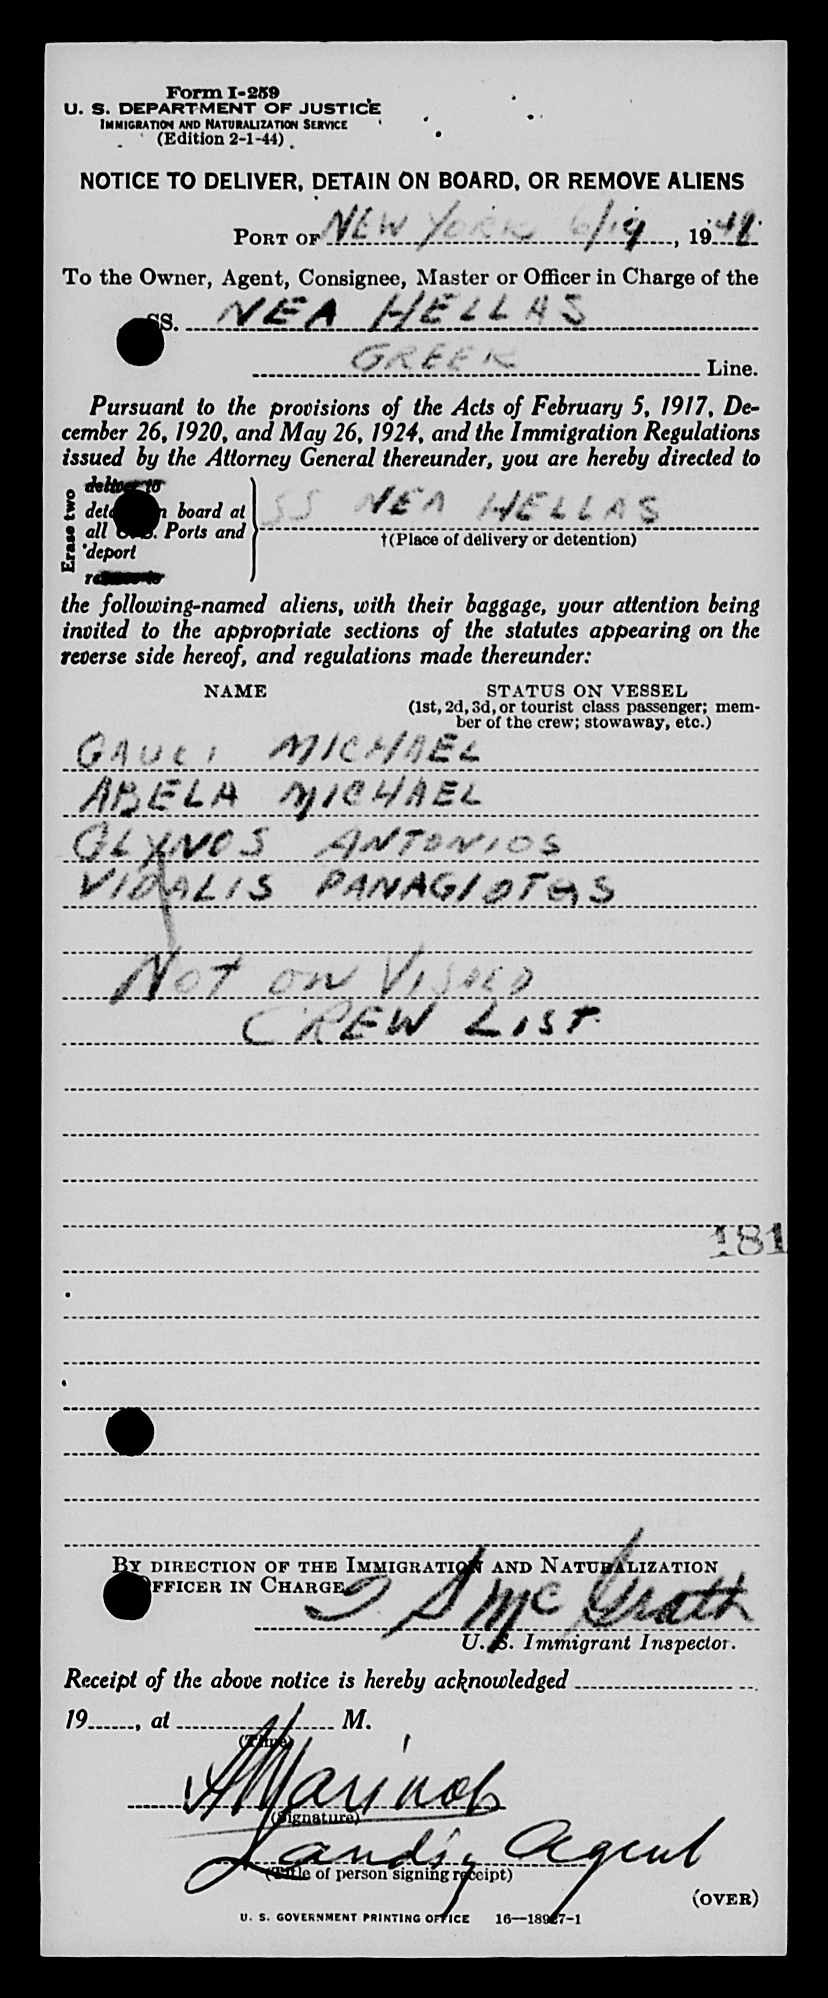 Form I-259
U. S. DEPARTMENT OF JUSTICE
IMMIGRATION AND NATURALIZATION SERVICE
(Edition 2-1-44)
NOTICE TO DELIVER, DETAIN ON BOARD, OR REMOVE ALIENS
PORT OF NEW YORK 6/19, 1948
To the Owner, Agent, Consignee, Master or Officer in Charge of the
SS. NEA HELLAS
GREEK Line.
Pursuant to the provisions of the Acts of February 5, 1917, De-
cember 26, 1920, and May 26, 1924, and the Immigration Regulations
issued by the Attorney General thereunder, you are hereby directed to
Erase two
deliver to
board at
all Ports and
deport
SS NEA HELLAS
†(Place of delivery or detention)
the following-named aliens, with their baggage, your attention being
invited to the appropriate sections of the statutes appearing on the
reverse side hereof, and regulations made thereunder:
NAME STATUS ON VESSEL
(1st, 2d, 3d, or tourist class passenger; mem-
ber of the crew; stowaway, etc.)
GAUCI MICHAEL
ABELA MICHAEL
GLYNOS ANTONIOS
VIDALIS PANAGIOTAS
NOT ON VISAED
CREW LIST.
181
BY DIRECTION OF THE IMMIGRATION AND NATURALIZATION
OFFICER IN CHARGE
S McGrath
U. S. Immigrant Inspector.
Receipt of the above notice is hereby acknowledged
19, at M.
(Time)
A Marinos
(Signature)
Landig Agent
(Title of person signing receipt)
(OVER)
U. S. GOVERNMENT PRINTING OFFICE 16—18927-1